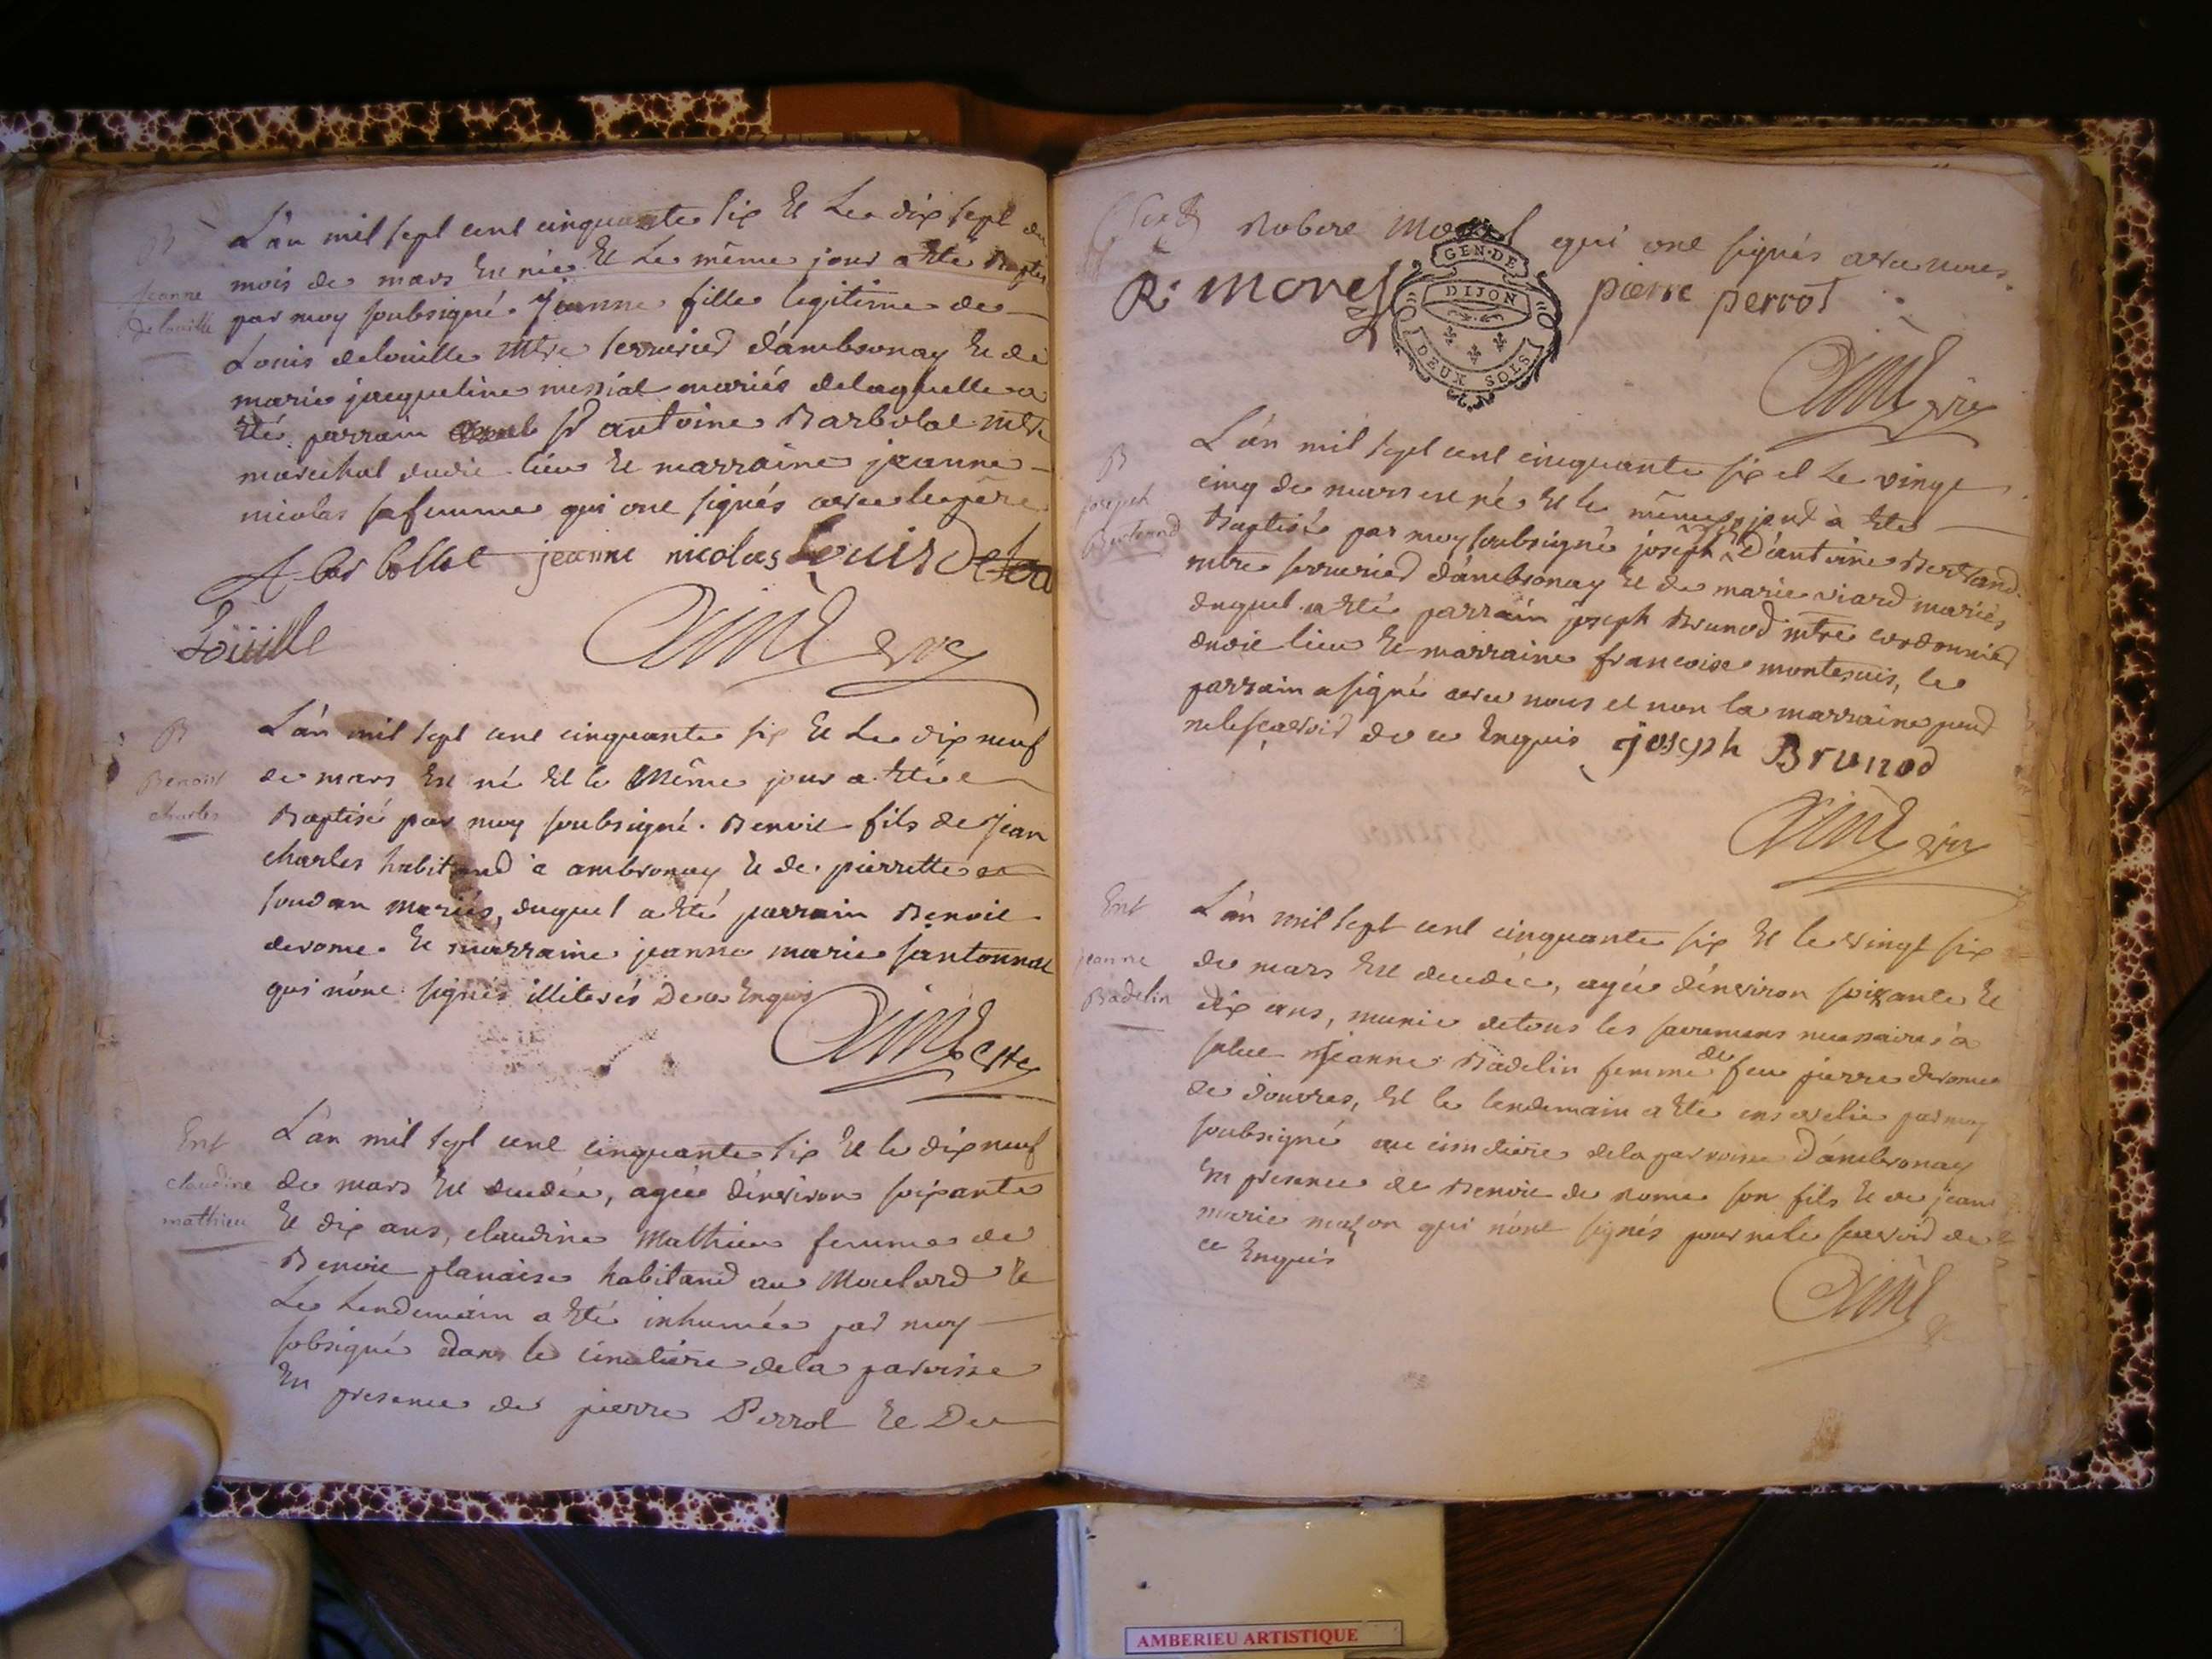 B
Jeanne
delouille
L'an mil sept cent cinquante six et Le dix sept du
mois de mars est née et Le même jour a été Baptisé
par moy soubsigné Jeanne fille legitime de
Louis delouille mtre serrurier d'ambronay et de
marie jacqueline messiat mariés de laquelle a
été parrain Sr antoine Barbolat mtre
marechal dudit lieu et marraine jeanne
nicolas sa femme qui ont signés avec le père
A barbollat jeanne nicolas Louis De
Loüille
B
Benoist
charles
L'an mil sept cent cinquante six et Le dix neuf
de mars est né et le même jour a été
Baptisé par moy soubsigné Benoit fils de Jean
charles habitand à ambronay et de pierrette
soudan mariés, duquel a été parrain Benoit
derome et marraine jeanne marie
qui n'ont signés illiterés De ce Enquis
Ent
claudine
mathieu
L'an mil sept cent cinquante six et le dix neuf
de mars est decedée, agée d'environ soixante
et dix ans, claudine Mathieu femme de
Benoit planaise habitand au Moulard et
Le Lendemain a été inhumée par moy
sobsigné dans le cimetière de la paroisse
En presence de pierre Perrot et De
Robert Morel qui ont signés avec nous
R. Morel pierre perrot
GEN. DE
DIJON
DEUX SOLS
B
joseph
Bertrand
L'an mil sept cent cinquante six et Le vingt
cinq de mars est né et le même jour à été
Baptisé par moy soubsigné joseph d'antoine Bertrand
mtre serrurier d'ambronay et de marie viard mariés
duquel a été parrain joseph Brunod mtre cordonnier
dudit lieu et marraine francoise montessuis, le
parrain a signé avec nous et non la marraine pour
ne le sçavoir de ce Enquis joseph Brunod
Ent
jeanne
Badelin
L'an mil sept cent cinquante six et le vingt six
de mars est decedée, agée d'environ soixante et
dix ans, munie de tous les sacremens necessaires à
salut Jeanne Badelin femme de feu pierre derome
de douvres, et le lendemain a été ensevelie par moy
soubsigné au cimetière de la paroisse D'ambronay
En presence de Benoit de rome son fils et de jean
marie maçon qui n'ont signés pour ne le sçavoir de
ce Enquis
AMBERIEU ARTISTIQUE